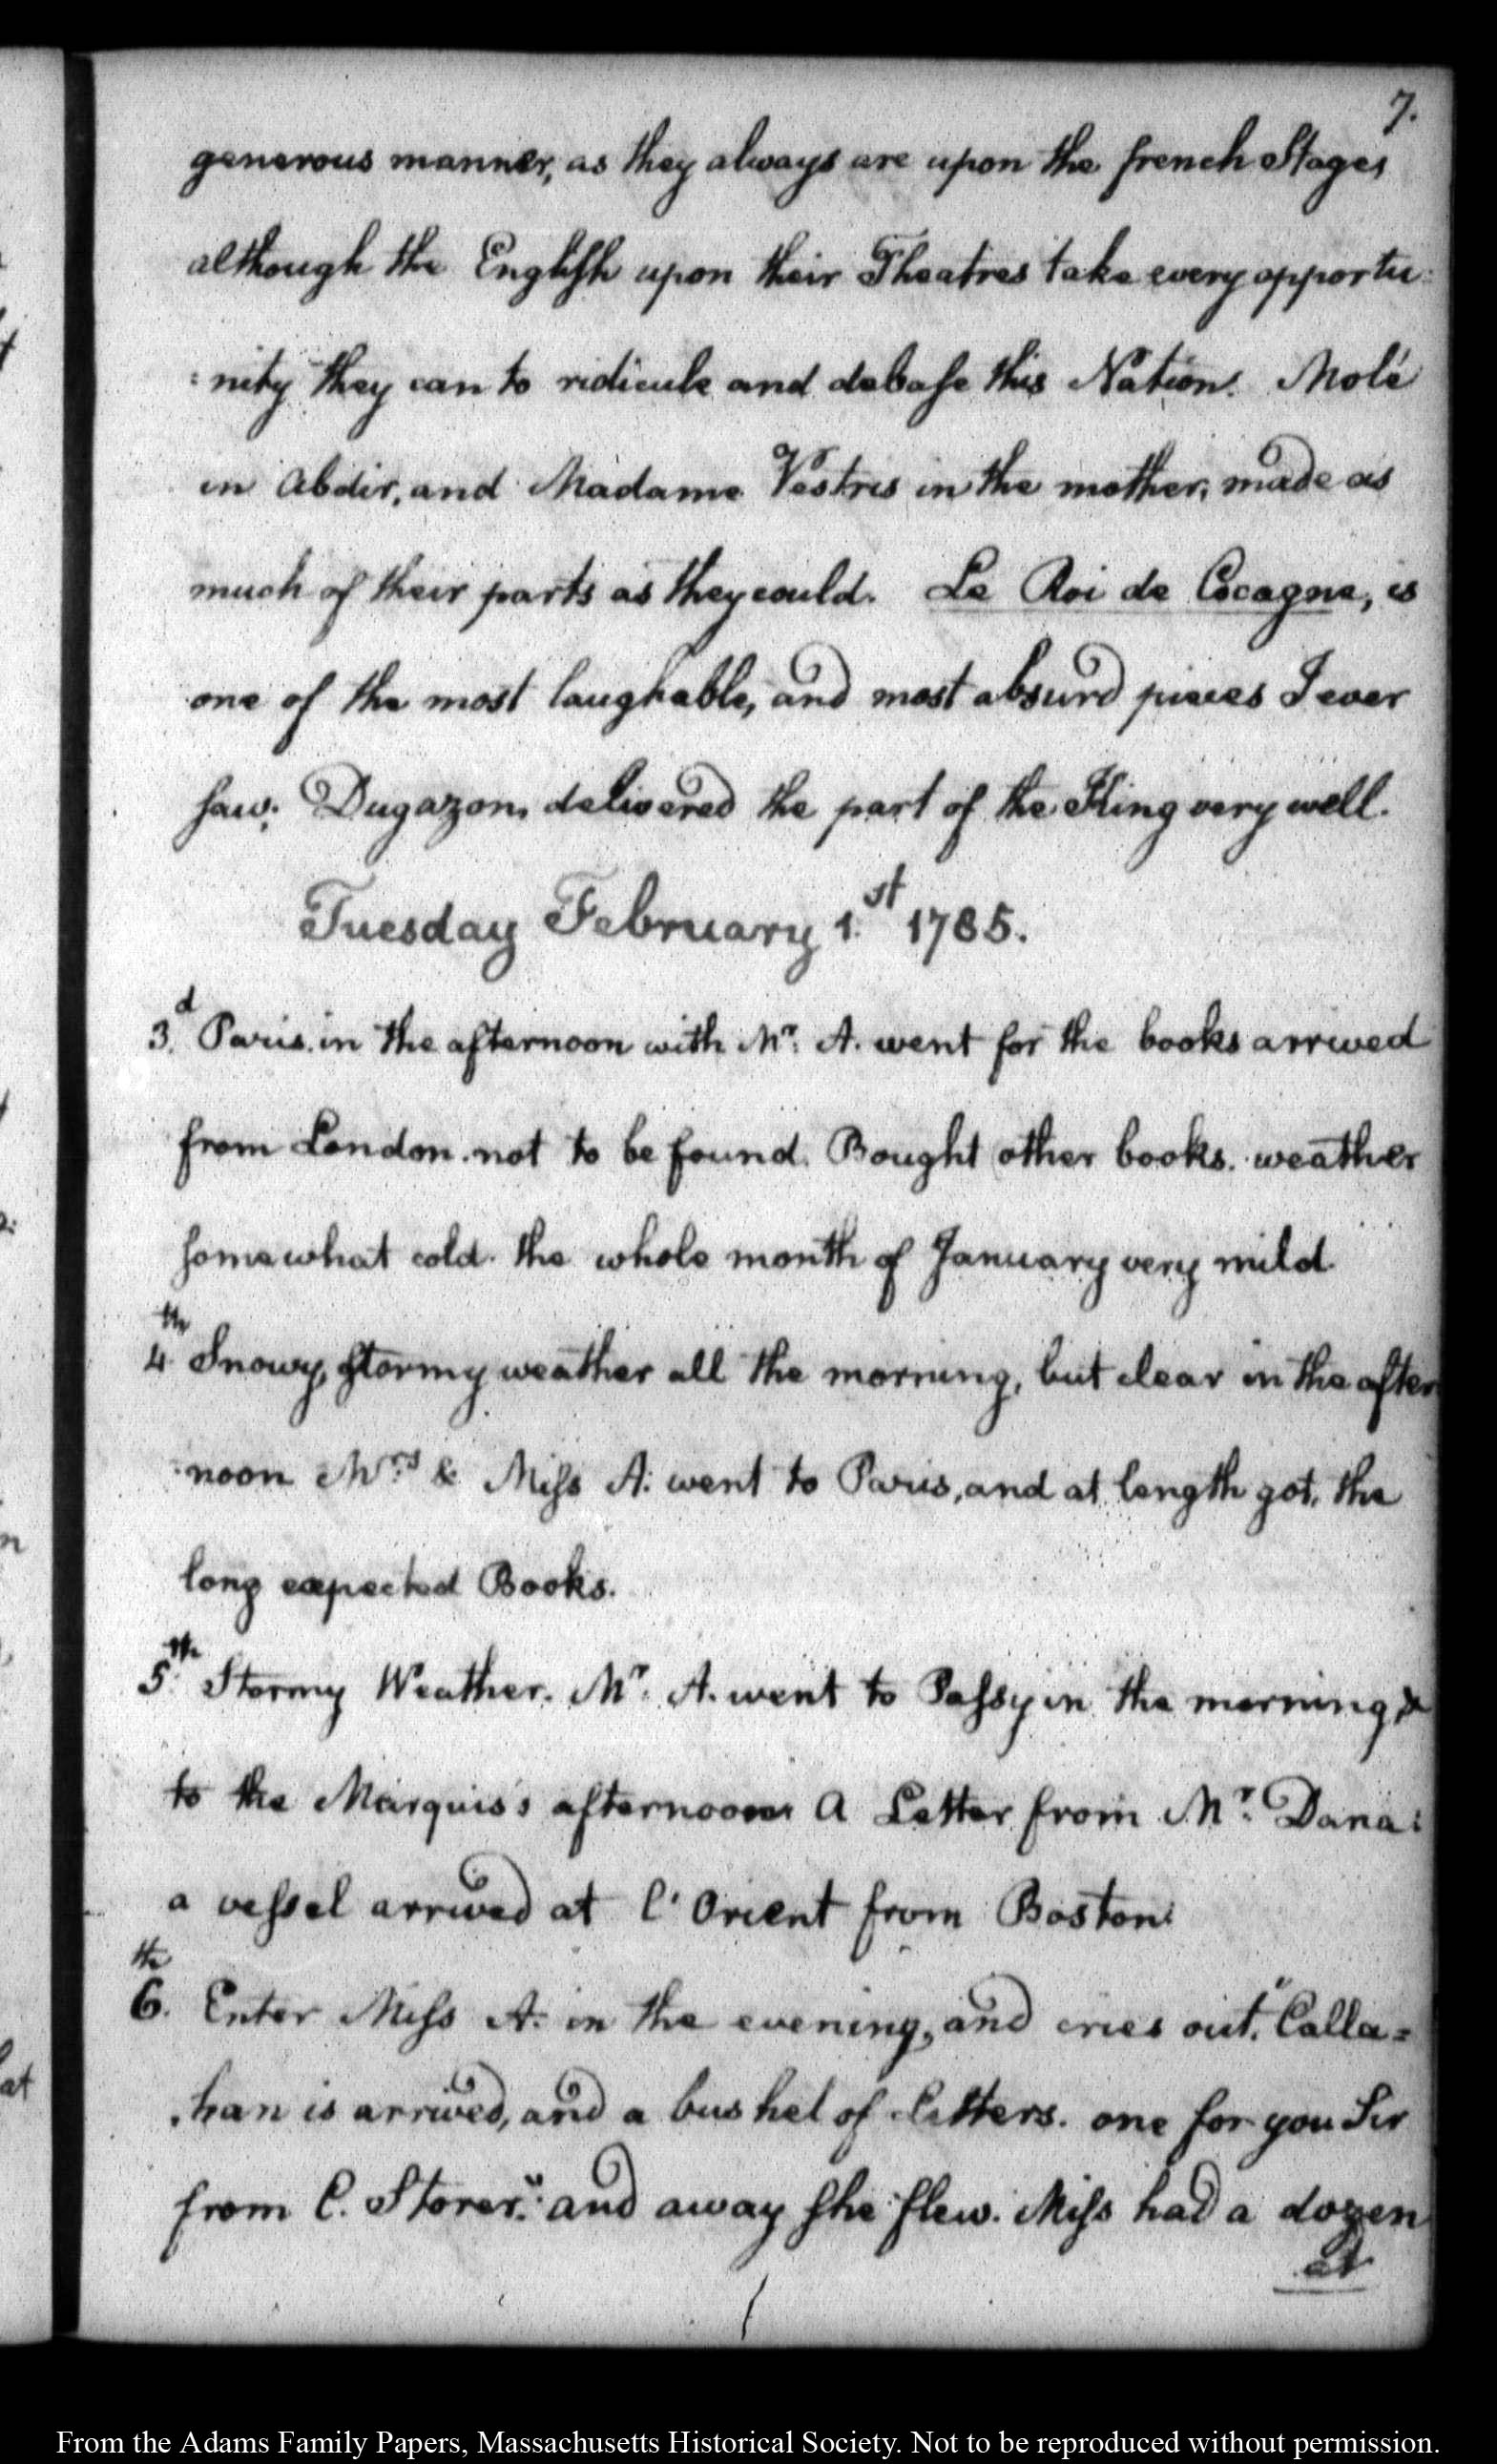 7.
generous manner, as they always are upon the french Stage,
although the English upon their Theatres take every opportu:
:nity they can to ridicule and debase this Nation. Molé
in Abdir, and Madame Vestris in the mother, made as
much of their parts as they could. Le Roi de Cocagne, is
one of the most laughable, and most absurd pieces I ever
saw; Dugazon, delivered the part of the King very well.
Tuesday February 1.st 1785.
3.d Paris. in the afternoon with Mr. A. went for the books arrived
from London. not to be found. Bought other books. weather
somewhat cold. the whole month of January very mild.
4th Snowy, stormy weather all the morning, but clear in the after
noon Mrs. & Miss A. went to Paris, and at length got, the
long expected Books.
5.th Stormy Weather. Mr. A. went to Passy in the morning, &
to the Marquis's afternoon A Letter from Mr. Dana:
a vessel arrived at l'Orient from Boston.
6.th Enter Miss A. in the evening, and cries out. "Calla=
han is arrived, and a bushel of Letters. one for you Sir
from C. Storer." and away she flew. Miss had a dozen
at
From the Adams Family Papers, Massachusetts Historical Society. Not to be reproduced without permission.